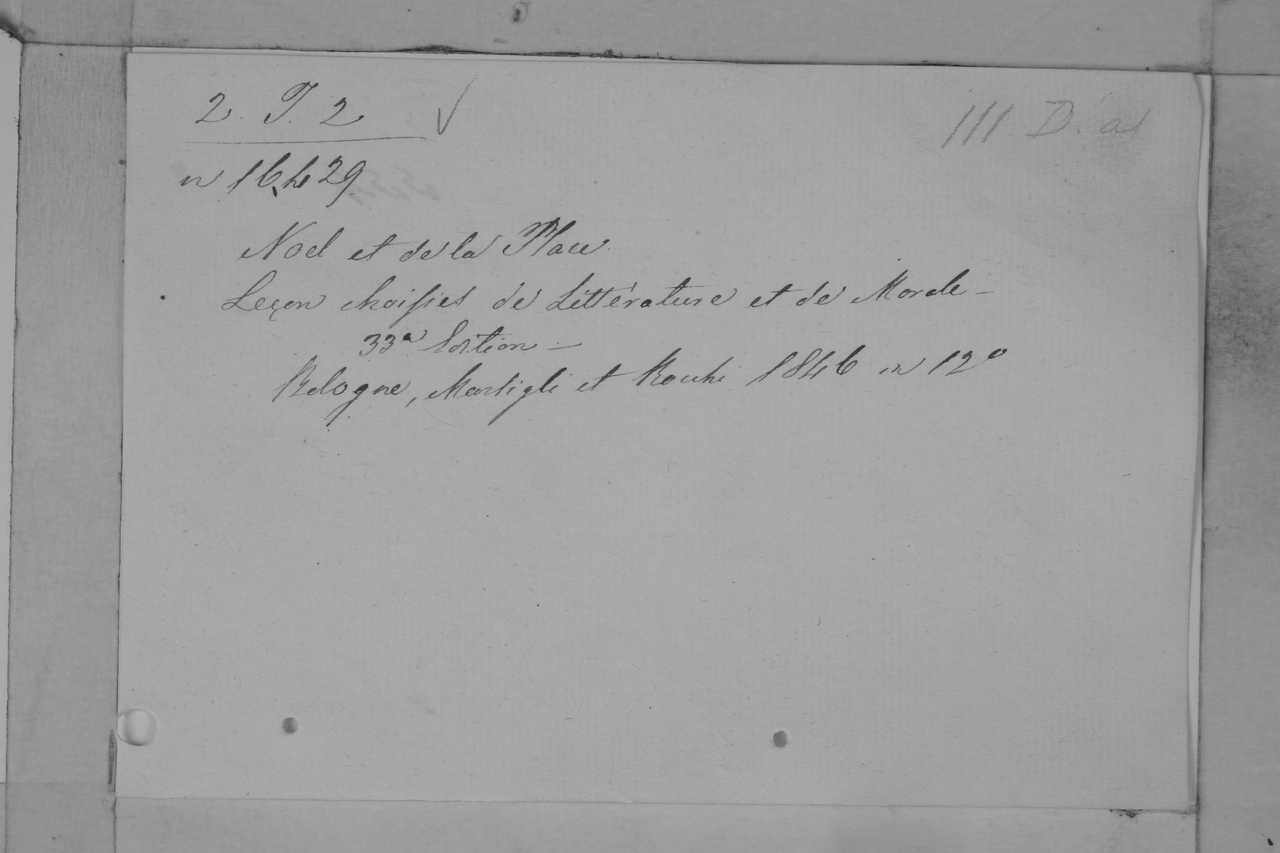 2. T. 2
III D. a
n 16429
Noel et de la Place
Leçon choisies de Littérature et de Morale -
33a Edition -
Bologne, Marsigli et Rocchi 1846 in 12°